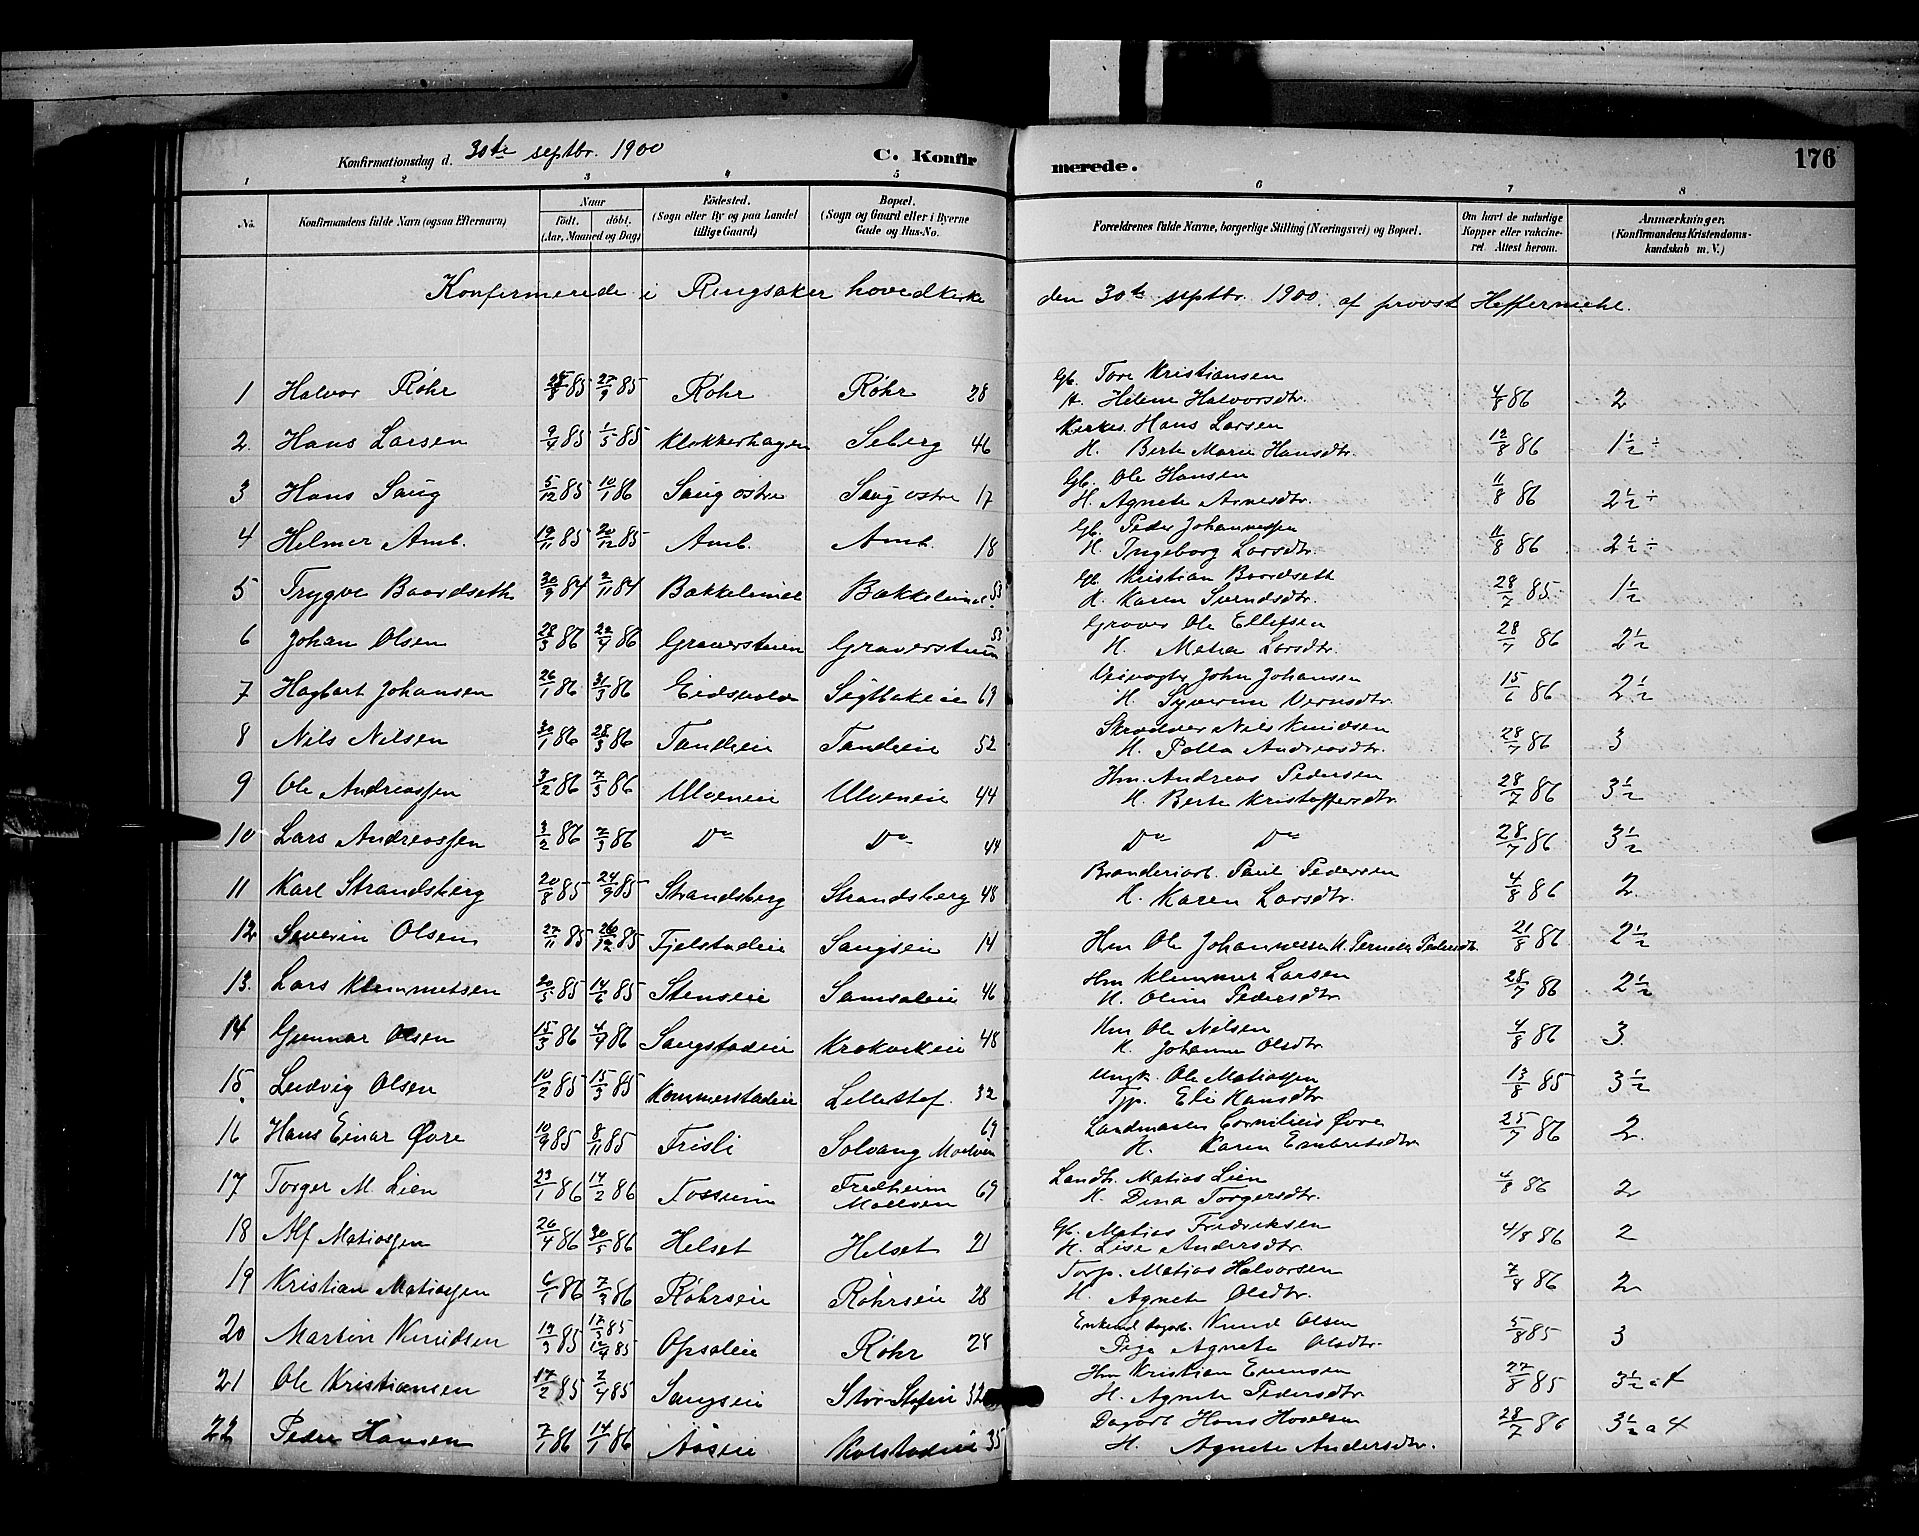 Konfirmationsdag d. 30te septbr. 1900 C. Konfirmerede. 176
1 2 3 4 5 6 7 8
No. Konfirmandens fulde Navn (ogsaa Efternavn) Naar født. døbt. (Aar, Maaned og Dag) Födested. (Sogn eller By og paa Landet tillige Gaard) Bopæl. (Sogn og Gaard eller i Byerne Gade og Hus-No. Forældrenes fulde Navne, borgerlige Stilling (Næringsvei) og Bopæl. Om havt de naturlige Kopper eller vakcineret. Attest herom. Anmærkninger. (Konfirmandens Kristendomskundskab m. V.)
Konfirmerede i Ringsaker hovedkirke den 30te septbr. 1900. af provst Heffermehl.
1 Halvor Røhr 85 27/9 85 Røhr Røhr 28 Gb. Tore Kristiansen H. Helene Halvorsdtr. 4/8 86 2
2. Hans Larsen 9/4 85 1/5 85 Klokkerhagen Seberg 46 Kirkes. Hans Larsen H. Berte Marie Hansdtr. 12/8 86 1 1/2 ÷
3 Hans Saug 5/12 85 10/1 86 Saug østre Saug østre 17 Gb. Ole Hansen H. Agnete Arnesdtr. 11/8 86 2 1/2 ÷
4 Helmer Amb. 19/11 85 20/12 85 Amb. Amb. 18 Gb. Peder Johannessen H. Ingeborg Larsdtr. 11/8 86 2 1/2 ÷
5 Trygve Baardseth 30/9 84 2/11 84 Bakkelunde Bakkelunde 53 Gb. Kristian Baardseth H. Karen Svendsdtr. 28/7 85 1 1/2
6 Johan Olsen 28/3 86 22/4 86 Graverstuen Graverstuen 53 Graver Ole Ellefsen H. Matea Larsdtr. 28/7 86 2 1/2
7 Hagbart Johansen 26/1 86 31/3 86 Eidsvold 69 Veivogter John Johansen H. Syverine 15/6 86 2 1/2
8 Nils Nilsen 30/1 86 28/3 86 Tandeie Tandeie 52 Skrædder Nils Knudsen H. Andreasdtr. 28/7 86 3
9 Ole Andreassen 3/2 86 7/3 86 Ulveneie Ulveneie 44 Hm. Andreas Pedersen H. Berte Kristoffersdtr. 28/7 86 3 1/2
10 Lars Andreassen 3/2 86 7/3 86 Do Do 44 Do Do 28/7 86 3 1/2
11 Karl Strandsberg 20/8 85 24/9 85 Strandsberg Strandsberg 48 Brænderiarb. Paul Pedersen H. Karen Larsdtr. 4/8 86 2.
12 Severin Olsen 27/11 85 26/12 85 Fjelstadeie Saugseie 14 Hm Ole Johannessen H. Pernille Pedersdtr. 21/8 86 2 1/2
13. Lars Klemmetsen 20/5 85 14/6 85 Stenseie Samsaleie 46 Hm Klemmet Larsen H. Oline Pedersdtr. 28/7 86 2 1/2
14 Gunnar Olsen 15/3 86 4/4 86 Saugstadeie Krokvikeie 48 Hm Ole Nilsen H. Johanne Olsdtr. 4/8 86 3.
15. Ludvig Olsen 10/2 85 15/3 85 Kommerstadeie Lillestof 32 Ungk. Ole Matiassen Tjp. Eli Hansdtr. 13/8 85 3 1/2
16 Hans Einar Øvre 10/9 85 8/11 85 Frisli Solvang Moelven 69 Landmaaler Cornelius Øvre H. Karen Embretsdtr. 25/7 86 2.
17 Torger M. Lien 23/1 86 14/2 86 Fossum Fredheim Moelven 69 Landh. Matias Lien H. Dina Torgersdtr. 4/8 86 2
18 Alf Matiassen 26/4 86 30/5 86 Helset Helset 21 Gb. Matias Fredriksen H. Lise Andersdtr. 4/8 86 2
19 Kristian Matiassen 6/1 86 7/3 86 Røhrseie Røhrseie 28 Torp. Matias Halvorsen H. Agnete Olsdtr. 7/8 86 2
20 Martin Knudsen 19/3 85 17/5 85 12/4 85 Opsaleie Røhr 28 Enkemd dagarb. Knud Olsen Pige Agnete Olsdtr. 5/8 85 3
21 Ole Kristiansen 17/2 85 2/4 85 Saugseie Stor-Stofen 32 Hm Kristian Evensen H. Agnete Pedersdtr. 27/8 85 3 1/2 a 4
22 Peder Hansen 7/1 86 14/1 86 Aaseie Kolstadeie 35 Dagarb. Hans H. Agnete Andersdtr. 28/7 86 3 1/2 a 4